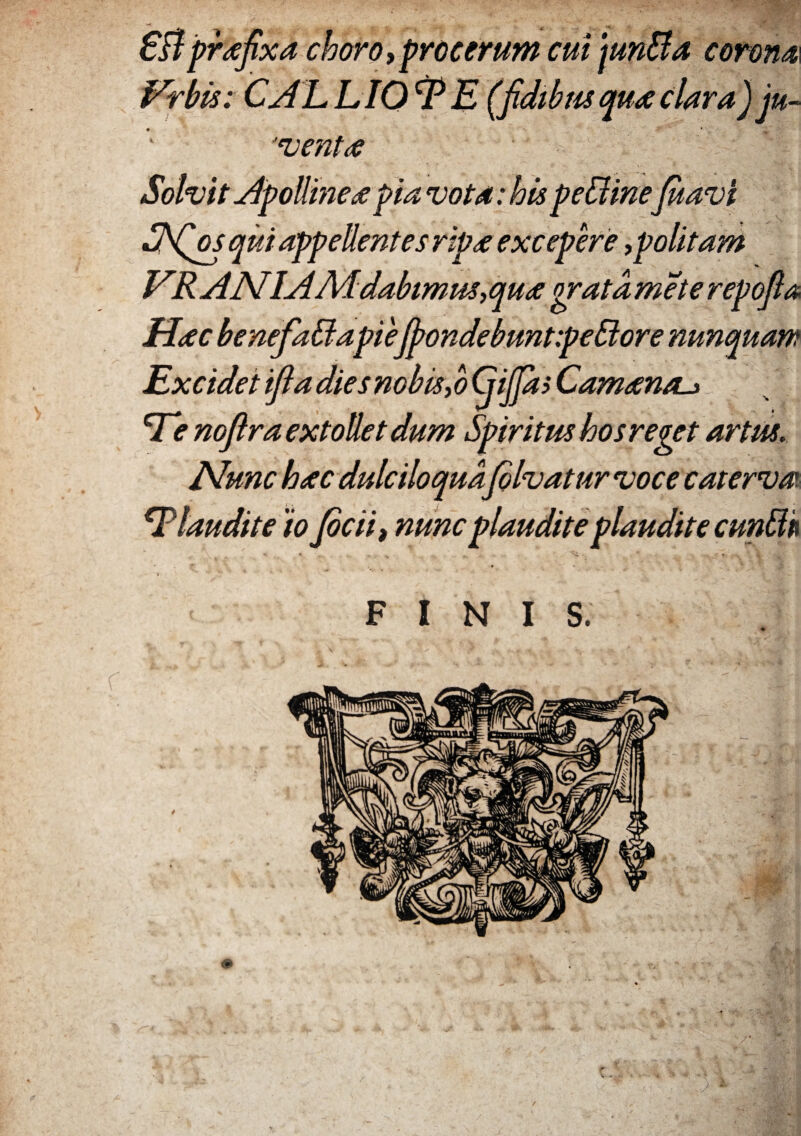 Est præfixa choro, procerum cui juncta corona
Vrbis: CALLIOPE (fidibus quæ clara) ju-
ventæ
Solvit Apollineæ pia vota: his pectine suavi
Nos qui appellentes ripæ excepêre, politam
VRANIAM dabimus, quæ gratâ mẽte reposta
Hæc benefacta piè spondebunt: pectore nunquam
Excidet ista dies nobis, ô Gissa; Camæna
Te nostra extollet dum Spiritus hos reget artus.
Nunc hæc dulciloquâ solvatur voce caterva
Plaudite io socii, nunc plaudite plaudite cuncti
FINIS.